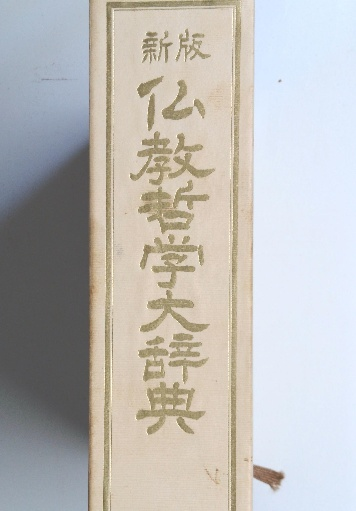 新版
仏教哲学大辞典